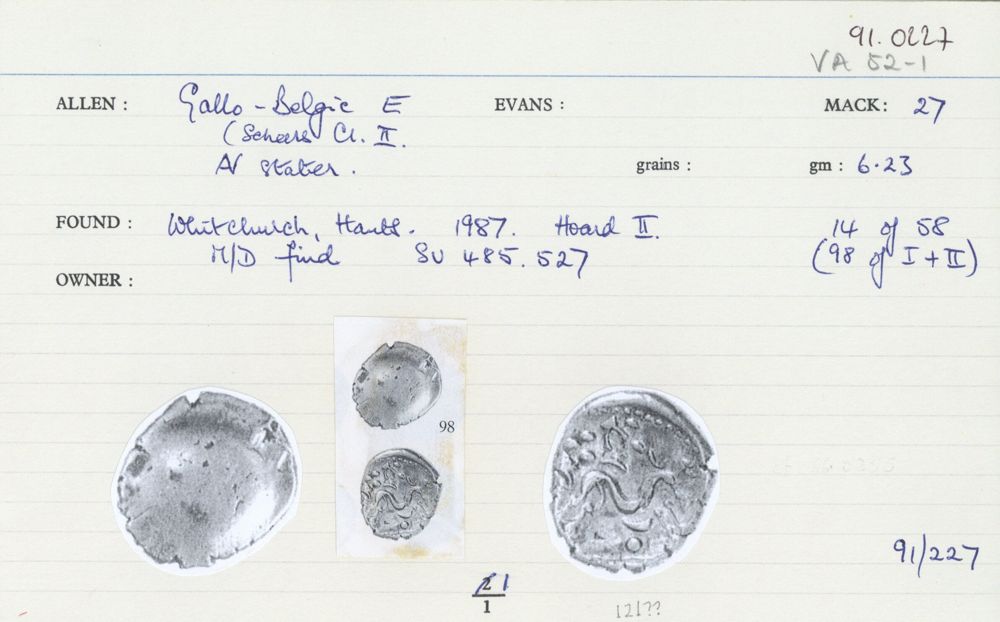 91.0227
VA 52-1
ALLEN : Gallo-Belgic E EVANS : MACK: 27
(Scheers Cl. II.
AV stater. grains : gm : 6.23
FOUND : Whitchurch, Hants. 1987. Hoard II. 14 of 58
M/D find SU 485.527 (98 of I + II)
OWNER :
98
91/227
2 1
1
121??